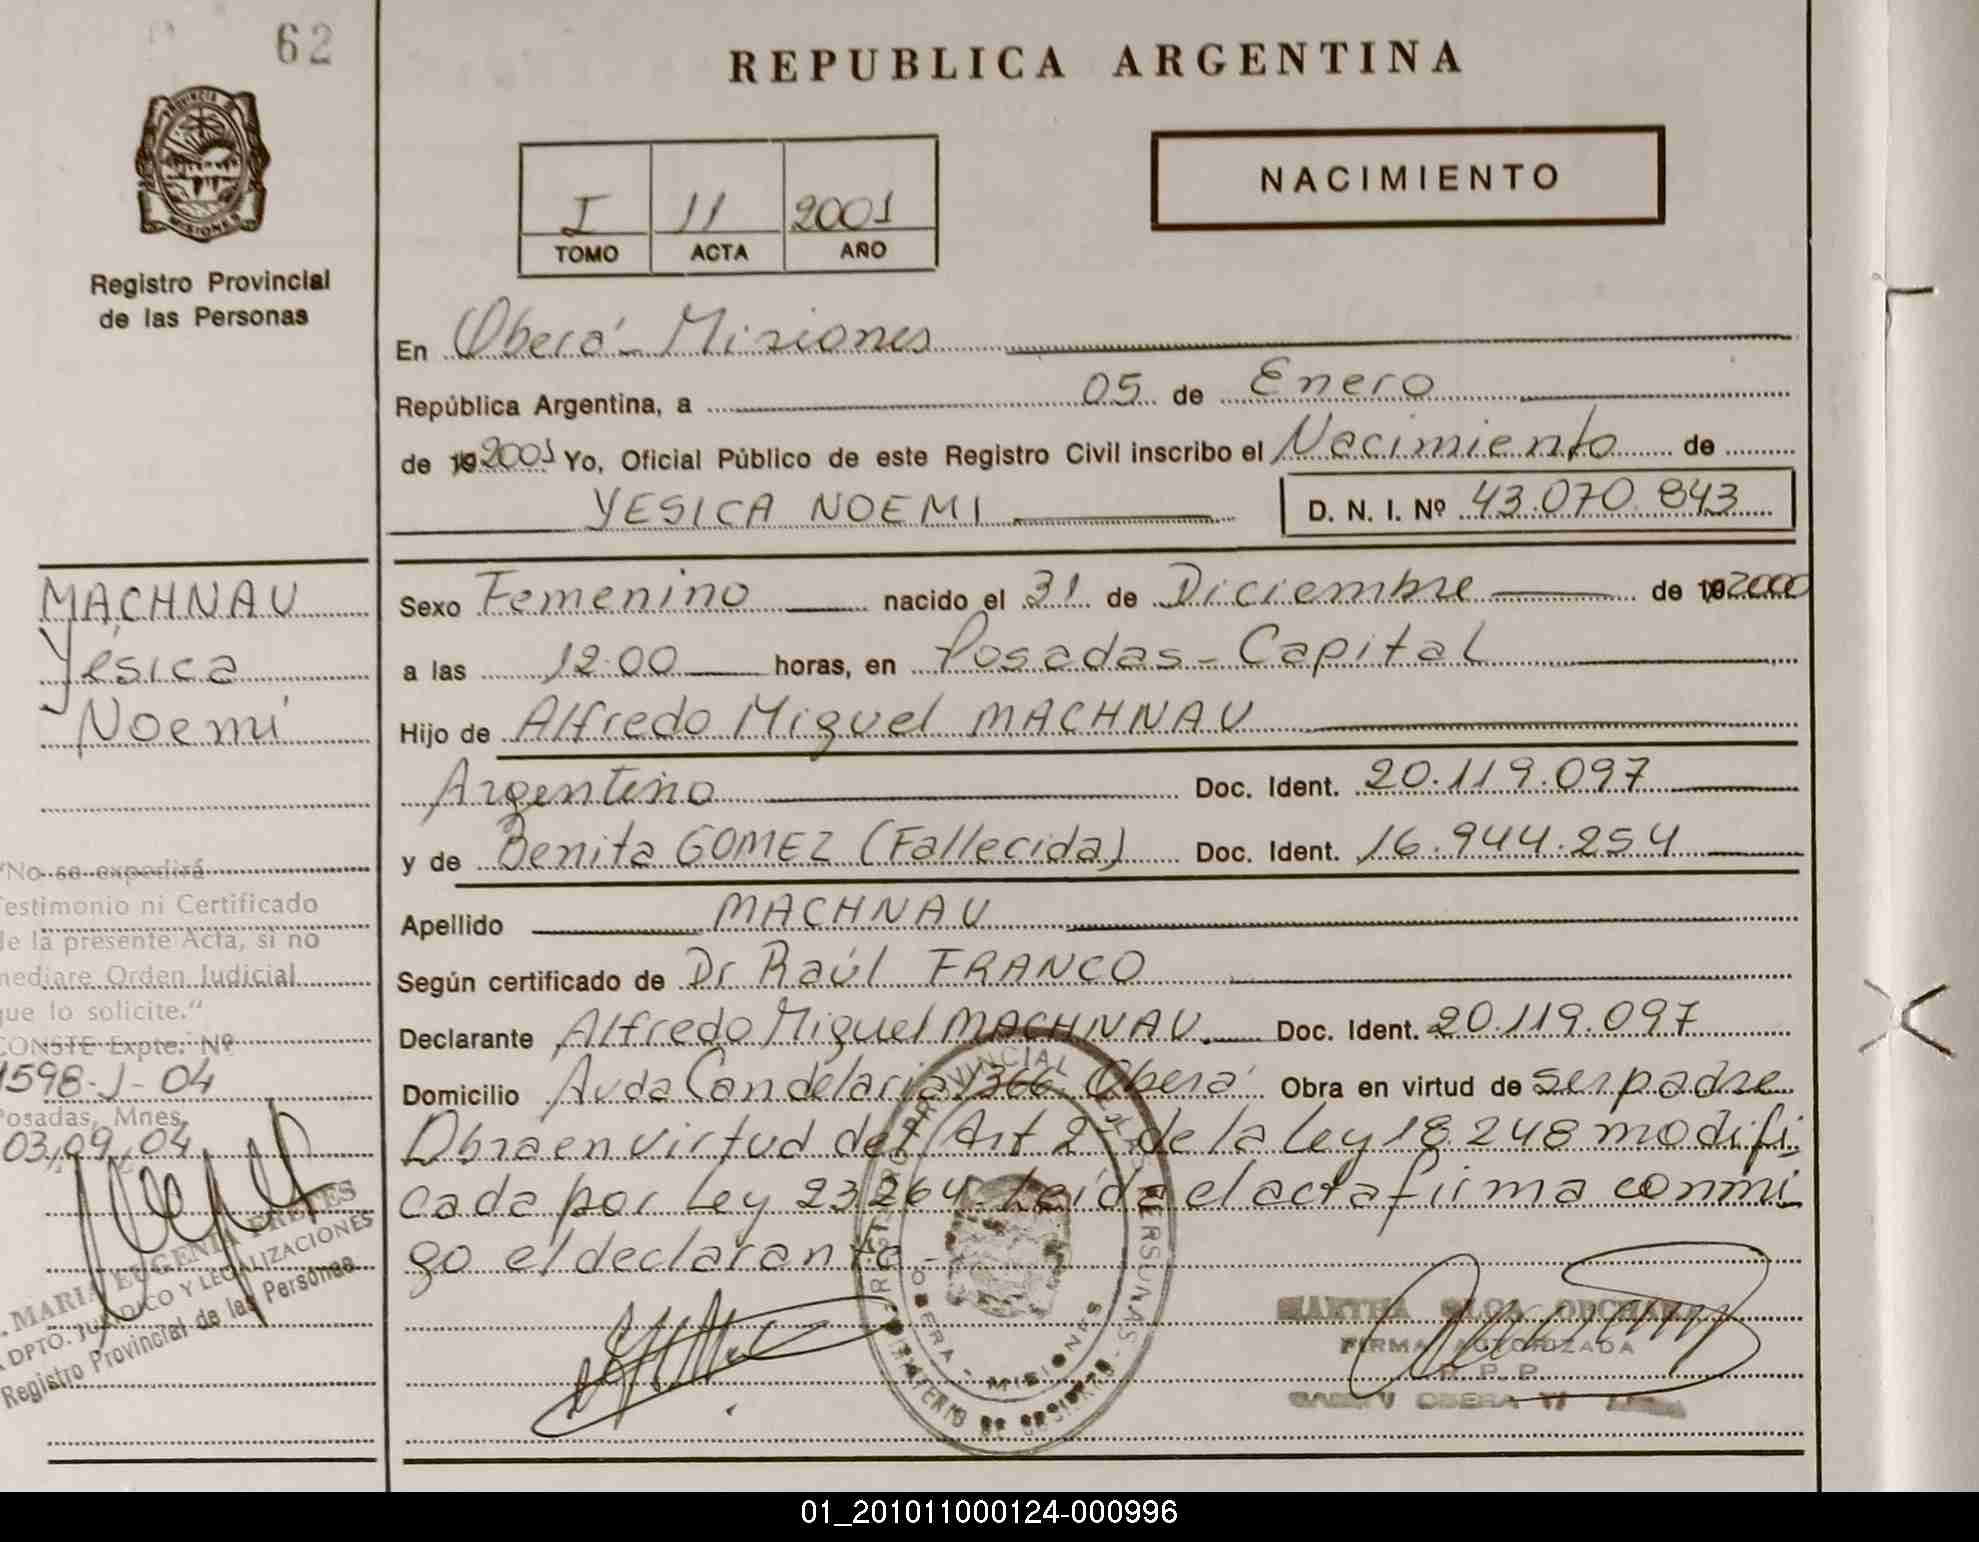 62
PROVINCIA DE
MISIONES
Registro Provincial
de las Personas
REPUBLICA ARGENTINA
NACIMIENTO
I 11 2001
TOMO ACTA AÑO
En Oberá - Misiones
República Argentina, a 05 de Enero
de 19 2001 Yo, Oficial Público de este Registro Civil inscribo el Nacimiento de
YESICA NOEMI D. N. I. Nº 43.070.843
MACHNAU
Yésica
Noemí
Sexo Femenino nacido el 31 de Diciembre de 19 2000
a las 12.00 horas, en Posadas - Capital
Hijo de Alfredo Miguel MACHNAU
Argentino Doc. Ident. 20.119.097
y de Benita GOMEZ (Fallecida) Doc. Ident. 16.944.254
Apellido MACHNAU
Según certificado de Dr Raúl FRANCO
Declarante Alfredo Miguel MACHNAU. Doc. Ident. 20.119.097
Domicilio Avda Candelaria 1366 Oberá Obra en virtud de ser padre
Obra en virtud del Art 2- de la Ley 18.248 modifi
cada por Ley 23264- Leída el acta firma conmi
go el declarante-
"No se expedirá
Testimonio ni Certificado
de la presente Acta, si no
mediare Orden Judicial
que lo solicite."
CONSTE Expte. Nº
1598-J-04
Posadas, Mnes,
03/09/04
MARIA EUGENIA
DPTO. JURIDICO Y LEGALIZACIONES
Registro Provincial de las Personas
REGISTRO PROVINCIAL DE LAS PERSONAS
OBERA - MISIONES
MINISTERIO DE GOBIERNO
MARTHA OLGA
FIRMA AUTORIZADA
R. P. P.
OBERA
01_201011000124-000996